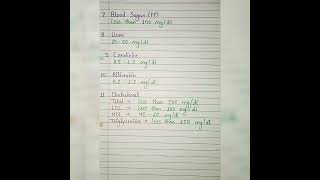 7. Blood Sugar (PP)
less than 140 mg/dl
8. Urea
20-50 mg/dl
9. Creatinine
0.5 - 1.2 mg/dl
10. Bilirubin
0.2 - 1.2 mg/dl
11. Cholesterol
Total → less than 200 mg/dl
LDL → less than 100 mg/dl
HDL → 40 - 60 mg/dl
Triglyceride → less than 150 mg/dl